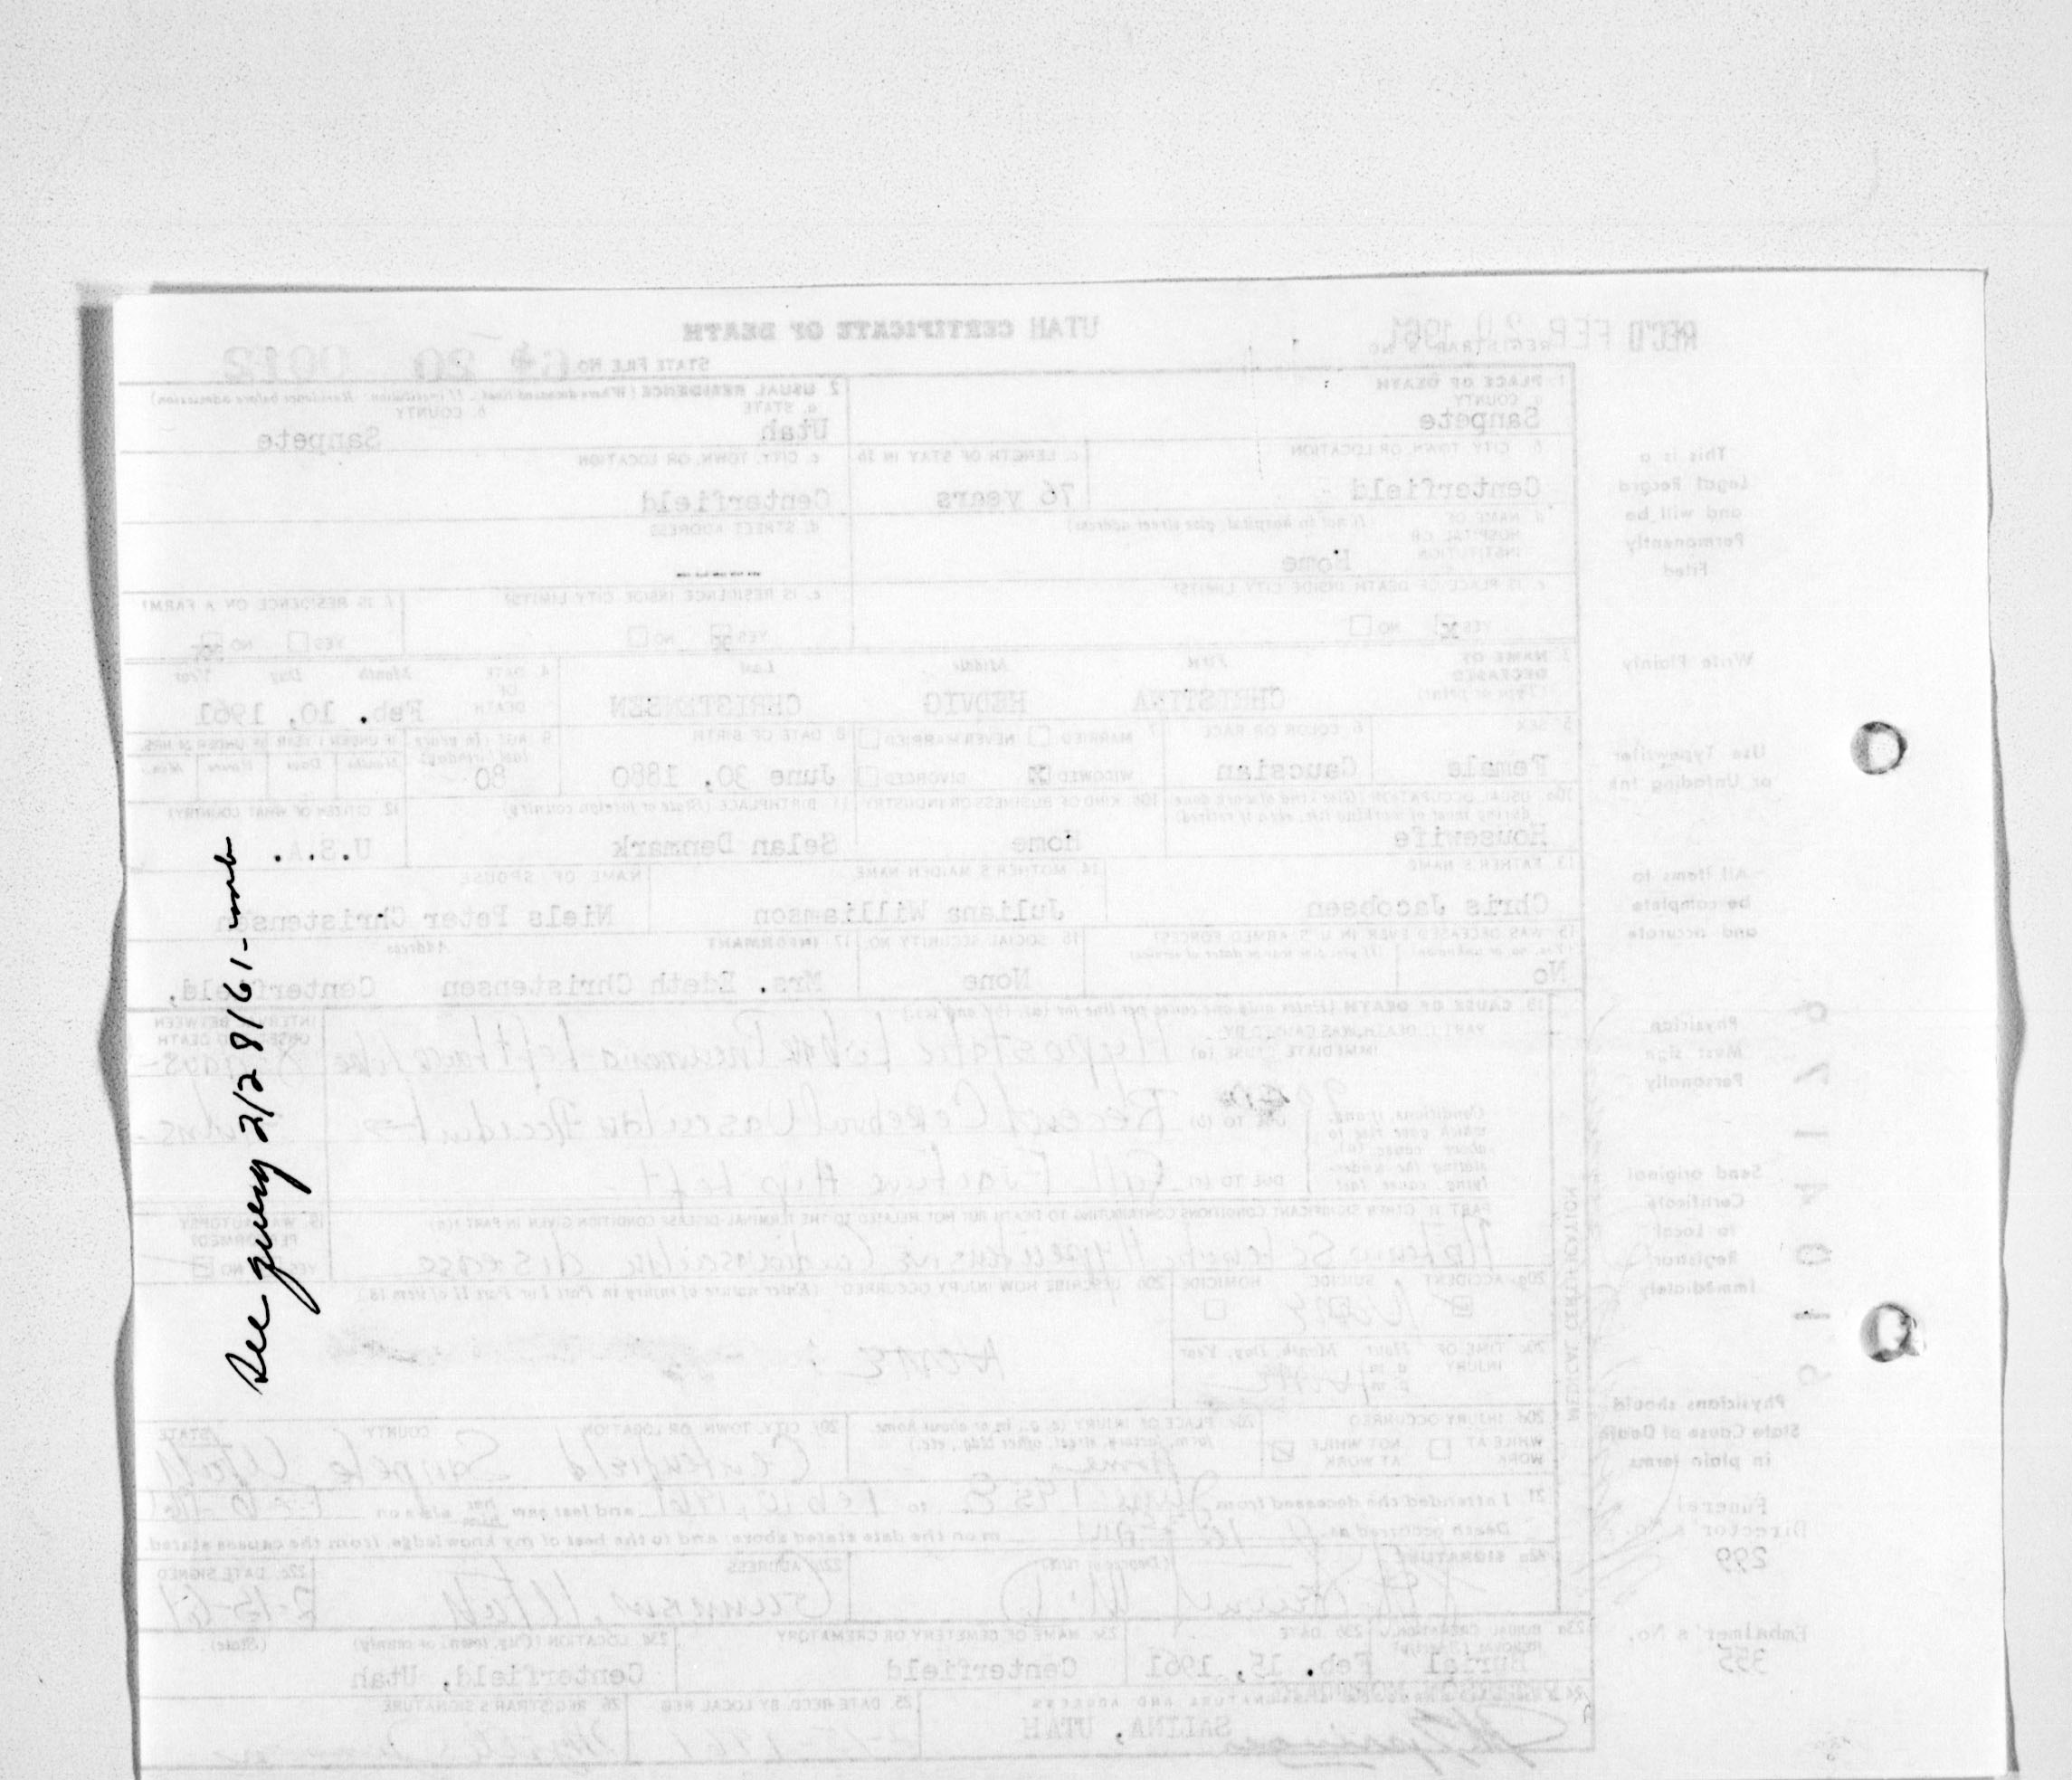 See query 2/28/61-mb
UTAH CERTIFICATE OF DEATH
REC'D FEB 20 1961
STATE FILE NO.
1. PLACE OF DEATH
a. COUNTY
Sanpete
2. USUAL RESIDENCE (Where deceased lived. If institution: Residence before admission)
a. STATE
Utah
b. COUNTY
Sanpete
b. CITY, TOWN, OR LOCATION
Centerfield
c. LENGTH OF STAY IN 1b
76 years
c. CITY, TOWN, OR LOCATION
Centerfield
d. NAME OF HOSPITAL OR INSTITUTION (If not in hospital, give street address)
Home
d. STREET ADDRESS
-----
e. IS PLACE OF DEATH INSIDE CITY LIMITS?
YES NO
e. IS RESIDENCE INSIDE CITY LIMITS?
YES NO
f. IS RESIDENCE ON A FARM?
YES NO
3. NAME OF DECEASED (Type or print)
First Middle Last
CHRISTINA HEDVIG CHRISTENSEN
4. DATE OF DEATH
Month Day Year
Feb. 10, 1961
5. SEX
Female
6. COLOR OR RACE
Caucsian
7. MARRIED NEVER MARRIED
WIDOWED DIVORCED
8. DATE OF BIRTH
June 30. 1880
9. AGE (In years last birthday)
80
IF UNDER 1 YEAR
Months Days
IF UNDER 24 HRS.
Hours Min.
10a. USUAL OCCUPATION (Give kind of work done during most of working life, even if retired)
Housewife
10b. KIND OF BUSINESS OR INDUSTRY
Home
11. BIRTHPLACE (State or foreign country)
Selan Denmark
12. CITIZEN OF WHAT COUNTRY?
U.S.A.
13. FATHER'S NAME
Chris Jacobsen
14. MOTHER'S MAIDEN NAME
Juliana Williamson
NAME OF SPOUSE
Niels Peter Christensen
15. WAS DECEASED EVER IN U.S. ARMED FORCES?
(Yes, no, or unknown) (If yes, give war or dates of service)
No
16. SOCIAL SECURITY NO.
None
17. INFORMANT Address
Mrs. Edeth Christensen Centerfield,
18. CAUSE OF DEATH (Enter only one cause per line for (a), (b), and (c).)
PART I. DEATH WAS CAUSED BY:
IMMEDIATE CAUSE (a) Hypostatic Lobar Pneumonia Left
INTERVAL BETWEEN ONSET AND DEATH
Conditions, if any, which gave rise to above cause (a), stating the underlying cause last.
DUE TO (b) Recent Cerebral Vascular Accident
DUE TO (c) Fall Fracture Hip Left
PART II. OTHER SIGNIFICANT CONDITIONS CONTRIBUTING TO DEATH BUT NOT RELATED TO THE TERMINAL DISEASE CONDITION GIVEN IN PART I(a)
Hypertensive Cardiovascular disease
19. WAS AUTOPSY PERFORMED?
YES NO
20a. ACCIDENT SUICIDE HOMICIDE
20b. DESCRIBE HOW INJURY OCCURRED (Enter nature of injury in Part I or Part II of item 18.)
20c. TIME OF INJURY Hour Month, Day, Year
a.m. p.m.
20d. INJURY OCCURRED
WHILE AT WORK NOT WHILE AT WORK
20e. PLACE OF INJURY (e.g., in or about home, farm, factory, street, office bldg., etc.)
Home
20f. CITY, TOWN, OR LOCATION COUNTY STATE
Centerfield Sanpete Utah
21. I attended the deceased from to Feb 10, 1961 and last saw alive on
Death occurred at m on the date stated above; and to the best of my knowledge, from the causes stated.
22a. SIGNATURE (Degree or title)
M.D.
22b. ADDRESS
Gunnison, Utah
22c. DATE SIGNED
2-15-61
23a. BURIAL, CREMATION, REMOVAL (Specify)
Burial
23b. DATE
Feb. 15, 1961
23c. NAME OF CEMETERY OR CREMATORY
Centerfield
23d. LOCATION (City, town, or county) (State)
Centerfield, Utah
SALINA, UTAH
25. DATE RECD. BY LOCAL REG.
26. REGISTRAR'S SIGNATURE
MEDICAL CERTIFICATION
This is a
Legal Record
and will be
Permanently
Filed
Write Plainly
Use Typewriter
or Unfading Ink
All items to
be complete
and accurate
Physician
Must sign
Personally
Send original
Certificate
to Local
Registrar
Immediately
Physicians should
State Cause of Death
in plain terms
Funeral
Director's No.
299
Embalmer's No.
355